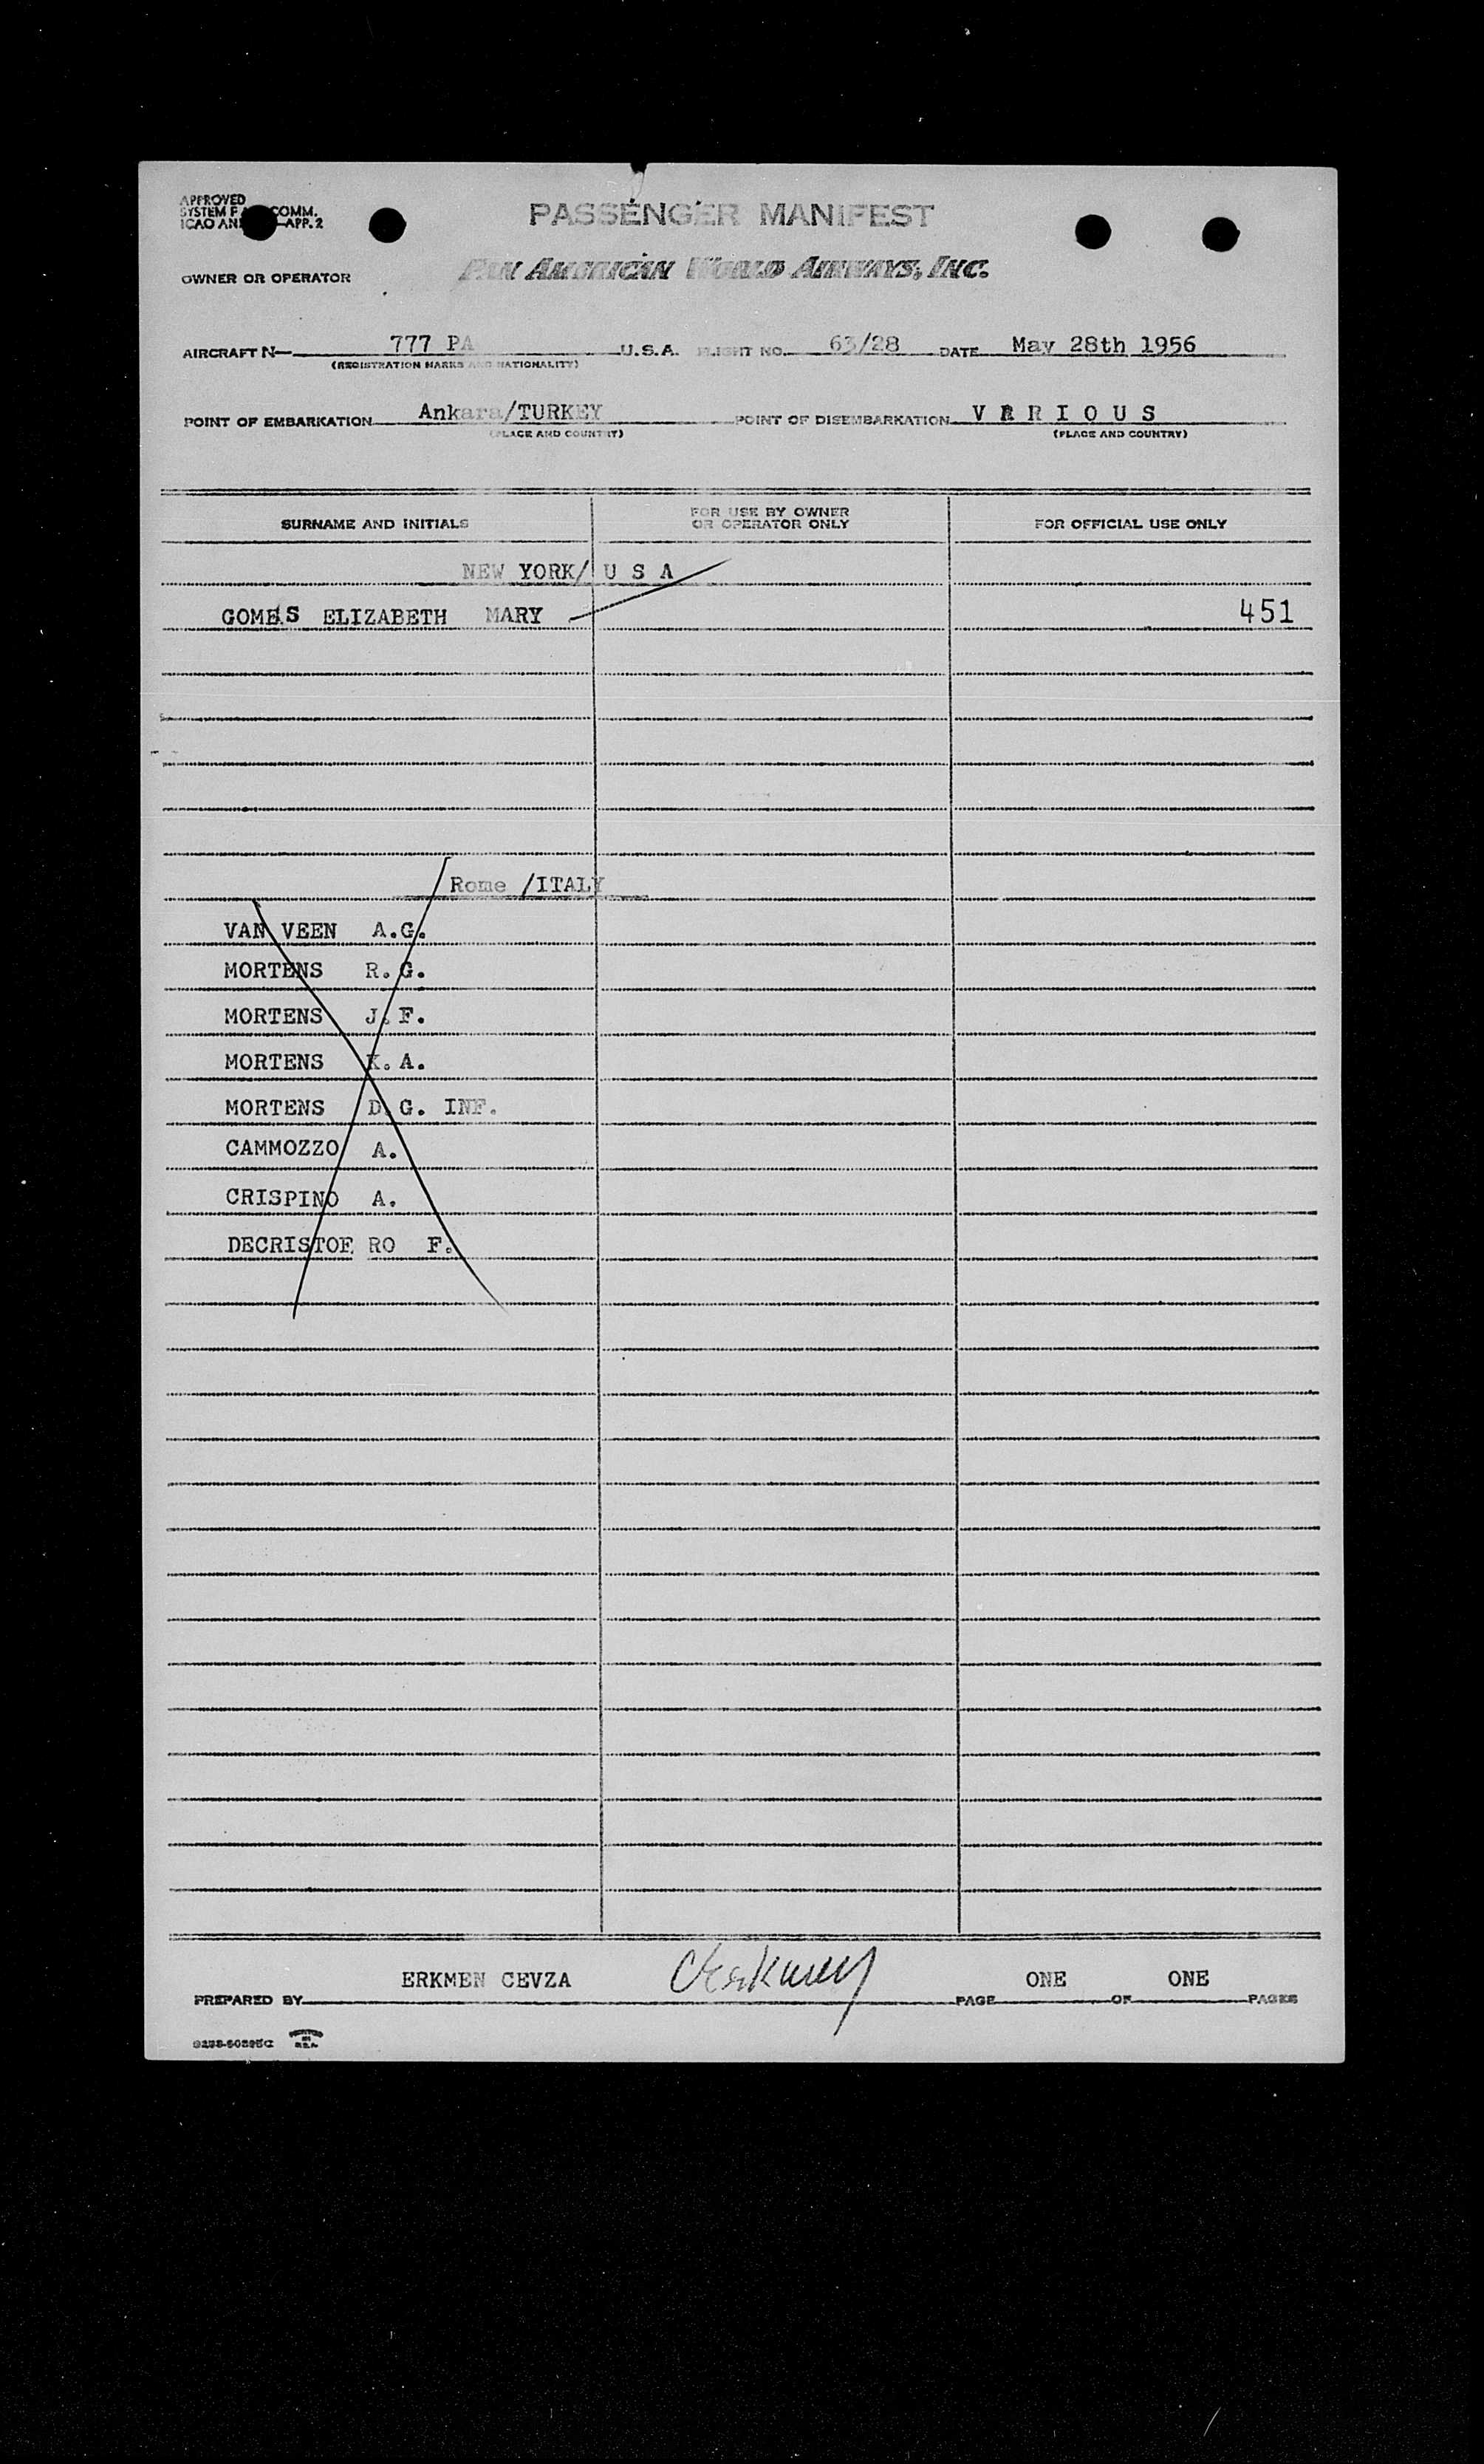 APPROVED
SYSTEM F COMM.
ICAO AN APP. 2
PASSENGER MANIFEST
OWNER OR OPERATOR PAN AMERICAN WORLD AIRWAYS, INC.
AIRCRAFT N— 777 PA U.S.A. FLIGHT NO. 63/28 DATE May 28th 1956
(REGISTRATION MARKS AND NATIONALITY)
POINT OF EMBARKATION Ankara/TURKEY POINT OF DISEMBARKATION V A R I O U S
(PLACE AND COUNTRY) (PLACE AND COUNTRY)
SURNAME AND INITIALS FOR USE BY OWNER OR OPERATOR ONLY FOR OFFICIAL USE ONLY
NEW YORK/ U S A
GOMES ELIZABETH MARY 451
Rome /ITALY
VAN VEEN A.G.
MORTENS R.G.
MORTENS J.F.
MORTENS K.A.
MORTENS D.G. INF.
CAMMOZZO A.
CRISPINO A.
DECRISTOF RO F.
ERKMEN CEVZA ONE ONE
PREPARED BY PAGE OF PAGES
PRINTED IN U.S.A.